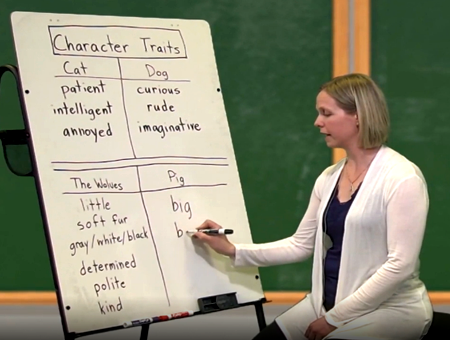 Character Traits
Cat Dog
patient curious
intelligent rude
annoyed imaginative
The Wolves Pig
little big
soft fur b
gray/white/black
determined
polite
kind